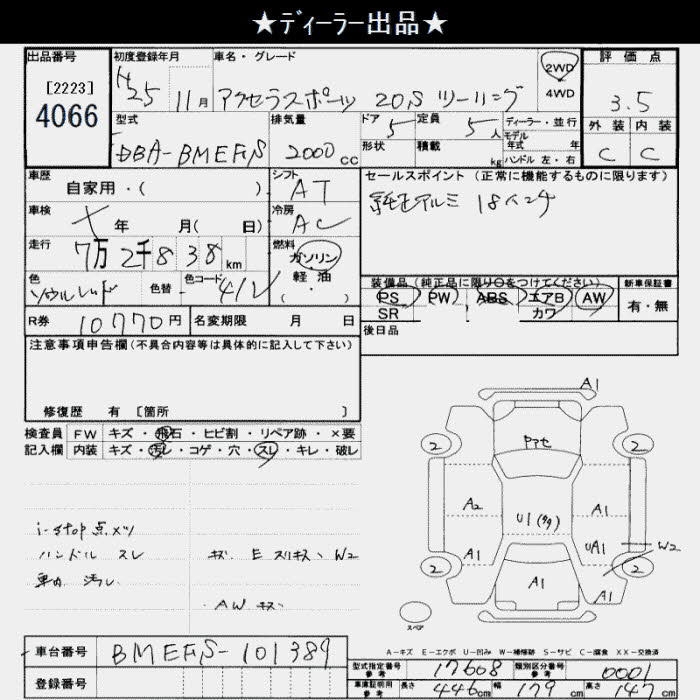 ★ディーラー出品★
出品番号
[2223]
4066
初度登録年月
H25 11月
車名・グレード
アクセラスポーツ 20,S ツーリング
2WD
4WD
評価点
3.5
外装 内装
C C
型式
DBA-BMEFS
排気量
2000 cc
ドア
5
定員
5人
形状
積載
kg
ディーラー・並行
モデル
年式 年
ハンドル 左・右
車歴
自家用・( )
シフト
AT
セールスポイント (正常に機能するものに限ります)
純正アルミ 18インチ
車検
年 月( 日)
冷房
AC
走行
7万2千838km
燃料
ガソリン
軽・油
( ・ )
色
ソウルレッド
色替
色コード
41V
装備品(純正品に限り○をつけてください)
PS PW ABS エアB AW
SR カワ
新車保証書
有・無
後日品
R券 10770円 名変期限 月 日
注意事項申告欄(不具合内容等は具体的に記入して下さい)
修復歴 有 [箇所 ]
検査員 FW キズ・飛石・ヒビ割・リペア跡・×要
記入欄 内装 キズ・汚レ・コゲ・穴・スレ・キレ・破レ
i-stop点メツ
ハンドル スレ
車内 汚レ
キズ E スリキズ、W2
AW キズ
A1
2
2
アトセ
A2
A1
U1
A1
UA1
W2
2
2
A1
A1
スペア
A-キズ E-エクボ U-凹み W-補修跡 S-サビ C-腐食 XX-交換済
車台番号 BMEFS-101389
登録番号
型式指定番号
参考
17608
類別区分番号
参考
0001
車庫証明用
参考
長さ 446cm 幅 179cm 高さ 147cm